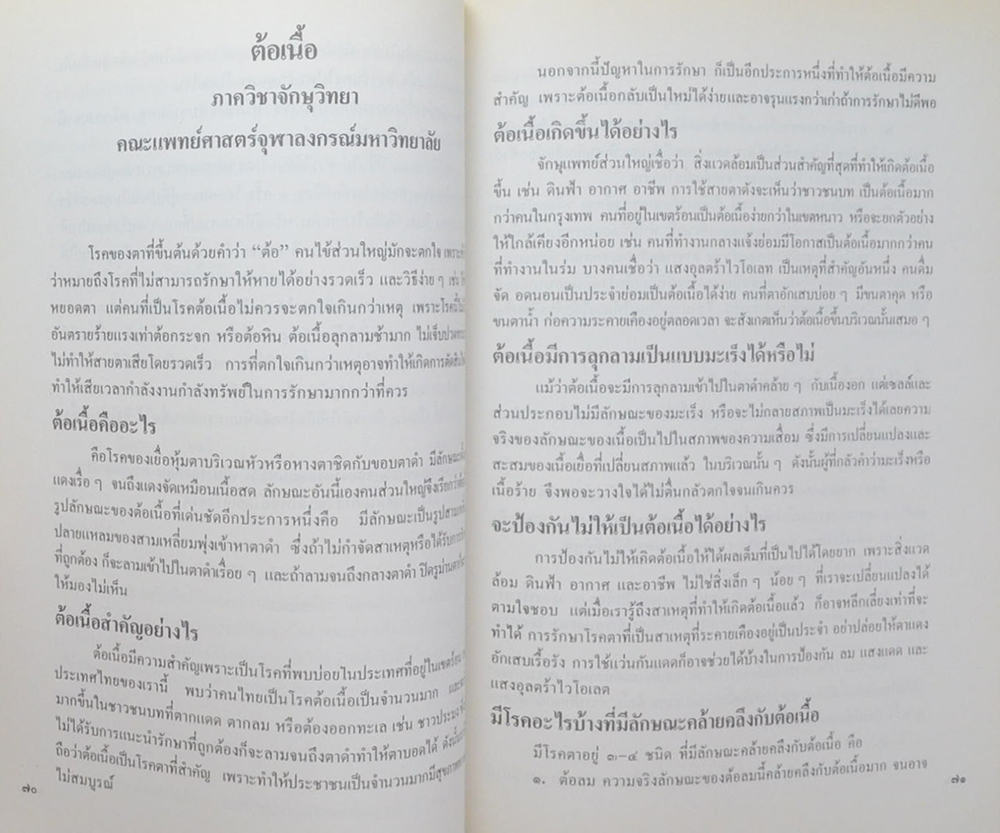 ต้อเนื้อ
ภาควิชาจักษุวิทยา
คณะแพทย์ศาสตร์จุฬาลงกรณ์มหาวิทยาลัย
โรคของตาที่ขึ้นต้นด้วยคำว่า “ต้อ” คนไข้ส่วนใหญ่มักจะตกใจ
ว่าหมายถึงโรคที่ไม่สามารถรักษาให้หายได้อย่างรวดเร็ว และวิธีง่าย ๆ เช่น
หยอดตา แต่คนที่เป็นโรคต้อเนื้อไม่ควรจะตกใจเกินกว่าเหตุ เพราะโรคนี้
อันตรายร้ายแรงเท่าต้อกระจก หรือต้อหิน ต้อเนื้อลุกลามช้ามาก
ไม่ทำให้สายตาเสียโดยรวดเร็ว การที่ตกใจเกินกว่าเหตุอาจทำให้เกิดการ
ทำให้เสียเวลากำลังงานกำลังทรัพย์ในการรักษามากกว่าที่ควร
ต้อเนื้อคืออะไร
คือโรคของเยื่อหุ้มตาบริเวณหัวหรือหางตาชิดกับขอบตาดำ
แดงเรื่อ ๆ จนถึงแดงจัดเหมือนเนื้อสด ลักษณะอันนี้เองคนส่วนใหญ่จึงเรียกว่า
รูปลักษณะของต้อเนื้อที่เด่นชัดอีกประการหนึ่งคือ มีลักษณะเป็นรูปสาม
ปลายแหลมของสามเหลี่ยมพุ่งเข้าหาตาดำ ซึ่งถ้าไม่กำจัดสาเหตุหรือได้รับการ
ที่ถูกต้อง ก็จะลามเข้าไปในตาดำเรื่อย ๆ และถ้าลามจนถึงกลางตาดำ ปิดรูม่านตา
ให้มองไม่เห็น
ต้อเนื้อสำคัญอย่างไร
ต้อเนื้อมีความสำคัญเพราะเป็นโรคที่พบบ่อยในประเทศที่อยู่ในเขตร้อน
ประเทศไทยของเรานี้ พบว่าคนไทยเป็นโรคต้อเนื้อเป็นจำนวนมาก
มากขึ้นในชาวชนบทที่ตากแดด ตากลม หรือต้องออกทะเล เช่น ชาวประมง
ไม่ได้รับการแนะนำรักษาที่ถูกต้องก็จะลามจนถึงตาดำทำให้ตาบอดได้
ถือว่าต้อเนื้อเป็นโรคตาที่สำคัญ เพราะทำให้ประชาชนเป็นจำนวนมากมี
ไม่สมบูรณ์
๗๐
นอกจากนี้ปัญหาในการรักษา ก็เป็นอีกประการหนึ่งที่ทำให้ต้อเนื้อมีความ
สำคัญ เพราะต้อเนื้อกลับเป็นใหม่ได้ง่ายและอาจรุนแรงกว่าเก่าถ้าการรักษาไม่ดีพอ
ต้อเนื้อเกิดขึ้นได้อย่างไร
จักษุแพทย์ส่วนใหญ่เชื่อว่า สิ่งแวดล้อมเป็นส่วนสำคัญที่สุดที่ทำให้เกิดต้อเนื้อ
ขึ้น เช่น ดินฟ้า อากาศ อาชีพ การใช้สายตาดังจะเห็นว่าชาวชนบท เป็นต้อเนื้อมาก
กว่าคนในกรุงเทพ คนที่อยู่ในเขตร้อนเป็นต้อเนื้อง่ายกว่าในเขตหนาว หรือจะยกตัวอย่าง
ให้ใกล้เคียงอีกหน่อย เช่น คนที่ทำงานกลางแจ้งย่อมมีโอกาสเป็นต้อเนื้อมากกว่าคน
ที่ทำงานในร่ม บางคนเชื่อว่า แสงอุลตร้าไวโอเลท เป็นเหตุที่สำคัญอันหนึ่ง คนดื่ม
จัด อดนอนเป็นประจำย่อมเป็นต้อเนื้อได้ง่าย คนที่ตาอักเสบบ่อย ๆ มีขนตาคุด หรือ
ขนตาน้ำ ก่อความระคายเคืองอยู่ตลอดเวลา จะสังเกตเห็นว่าต้อเนื้อขึ้นบริเวณนั้นเสมอ ๆ
ต้อเนื้อมีการลุกลามเป็นแบบมะเร็งได้หรือไม่
แม้ว่าต้อเนื้อจะมีการลุกลามเข้าไปในตาดำคล้าย ๆ กับเนื้องอก แต่เซลล์และ
ส่วนประกอบไม่มีลักษณะของมะเร็ง หรือจะไม่กลายสภาพเป็นมะเร็งได้เลยความ
จริงของลักษณะของเนื้อเป็นไปในสภาพของความเสื่อม ซึ่งมีการเปลี่ยนแปลงและ
สะสมของเนื้อเยื่อที่เปลี่ยนสภาพแล้ว ในบริเวณนั้น ๆ ดังนั้นผู้ที่กลัวคำว่ามะเร็งหรือ
เนื้อร้าย จึงพอจะวางใจได้ไม่ตื่นกลัวตกใจจนเกินควร
จะป้องกันไม่ให้เป็นต้อเนื้อได้อย่างไร
การป้องกันไม่ให้เกิดต้อเนื้อให้ได้ผลเต็มที่เป็นไปได้โดยยาก เพราะสิ่งแวด
ล้อม ดินฟ้า อากาศ และอาชีพ ไม่ใช่สิ่งเล็ก ๆ น้อย ๆ ที่เราจะเปลี่ยนแปลงได้
ตามใจชอบ แต่เมื่อเรารู้ถึงสาเหตุที่ทำให้เกิดต้อเนื้อแล้ว ก็อาจหลีกเลี่ยงเท่าที่จะ
ทำได้ การรักษาโรคตาที่เป็นสาเหตุที่ระคายเคืองอยู่เป็นประจำ อย่าปล่อยให้ตาแดง
อักเสบเรื้อรัง การใช้แว่นกันแดดก็อาจช่วยได้บ้างในการป้องกัน ลม แสงแดด และ
แสงอุลตร้าไวโอเลต
มีโรคอะไรบ้างที่มีลักษณะคล้ายคลึงกับต้อเนื้อ
มีโรคตาอยู่ ๓-๔ ชนิด ที่มีลักษณะคล้ายคลึงกับต้อเนื้อ คือ
๑. ต้อลม ความจริงลักษณะของต้อลมนี้คล้ายคลึงกับต้อเนื้อมาก จนอาจ
๗๑